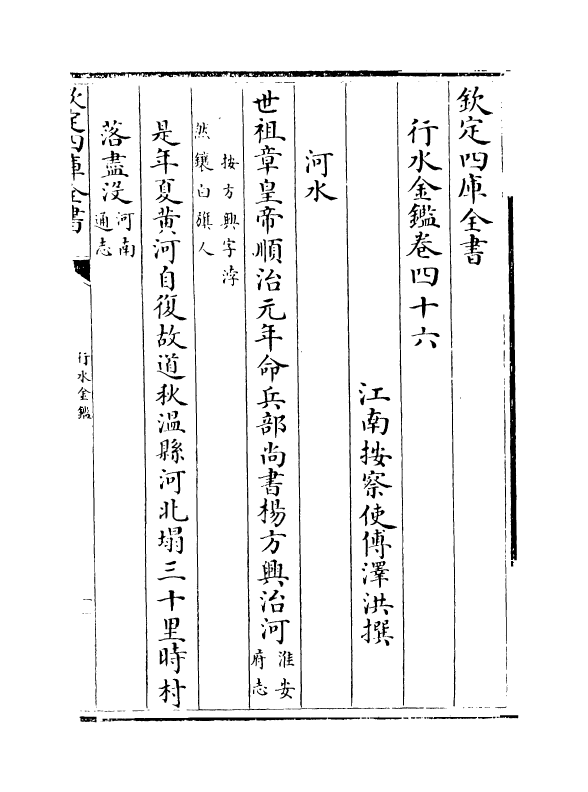 欽定四庫全書
行水金鑑卷四十六
江南按察使傅澤洪撰
河水
世祖章皇帝順治元年命兵部尚書楊方興治河淮安
府志
按方興字浡
然鑲白旗人
是年夏黃河自復故道秋溫縣河北塌三十里時村
落盡没河南
通志
欽定四庫全書
行水金鑑
一